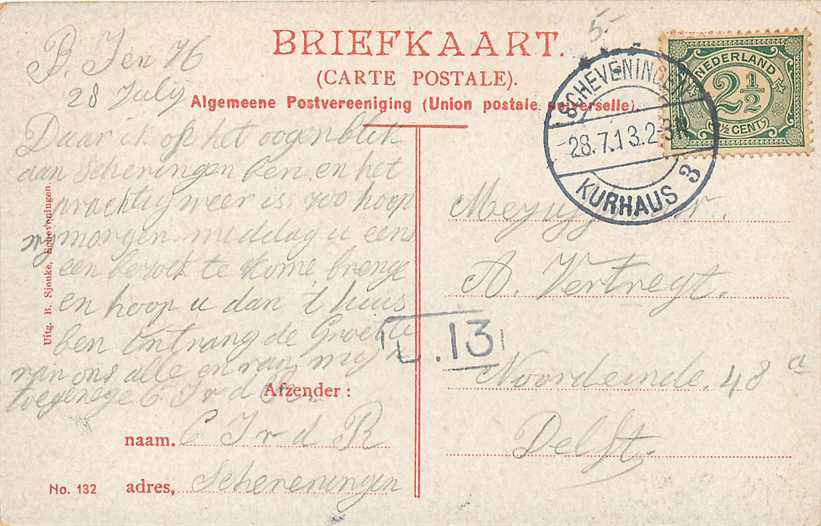 5.-
BRIEFKAART.
(CARTE POSTALE).
Algemeene Postvereeniging (Union postale universelle).
28 July
Daar ik op het oogenblik
aan Scheveningen ben, en het
prachtig weer is, zoo hoop
morgen middag u eens
een bezoek te kome brenge
en hoop u dan t huis
ben ontvang de Groete
van ons alle en van mijn
toegenege C J v d
Afzender:
naam. C J v d R
adres, Scheveningen
No. 132
Uitg. B. Sjouke, Scheveningen.
SCHEVENINGEN
28.7.13.2-3N
KURHAUS 3
NEDERLAND
2½
2½ CENT
Mejuffrouw.
A. Vertregt.
Noordeinde. 48 a
Delft.
L.13